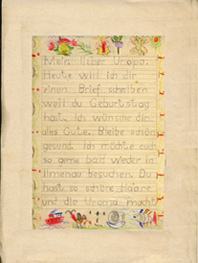 Mein lieber Uropa.
Heute will ich dir
einen Brief schreiben
weil du Geburtstag
hast. Ich wünsche dir
alles Gute. Bleibe schön
gesund. Ich möchte euch
so gerne bald wieder in
Ilmenau besuchen. Du
hast so schöne Haare
und die Uroma macht